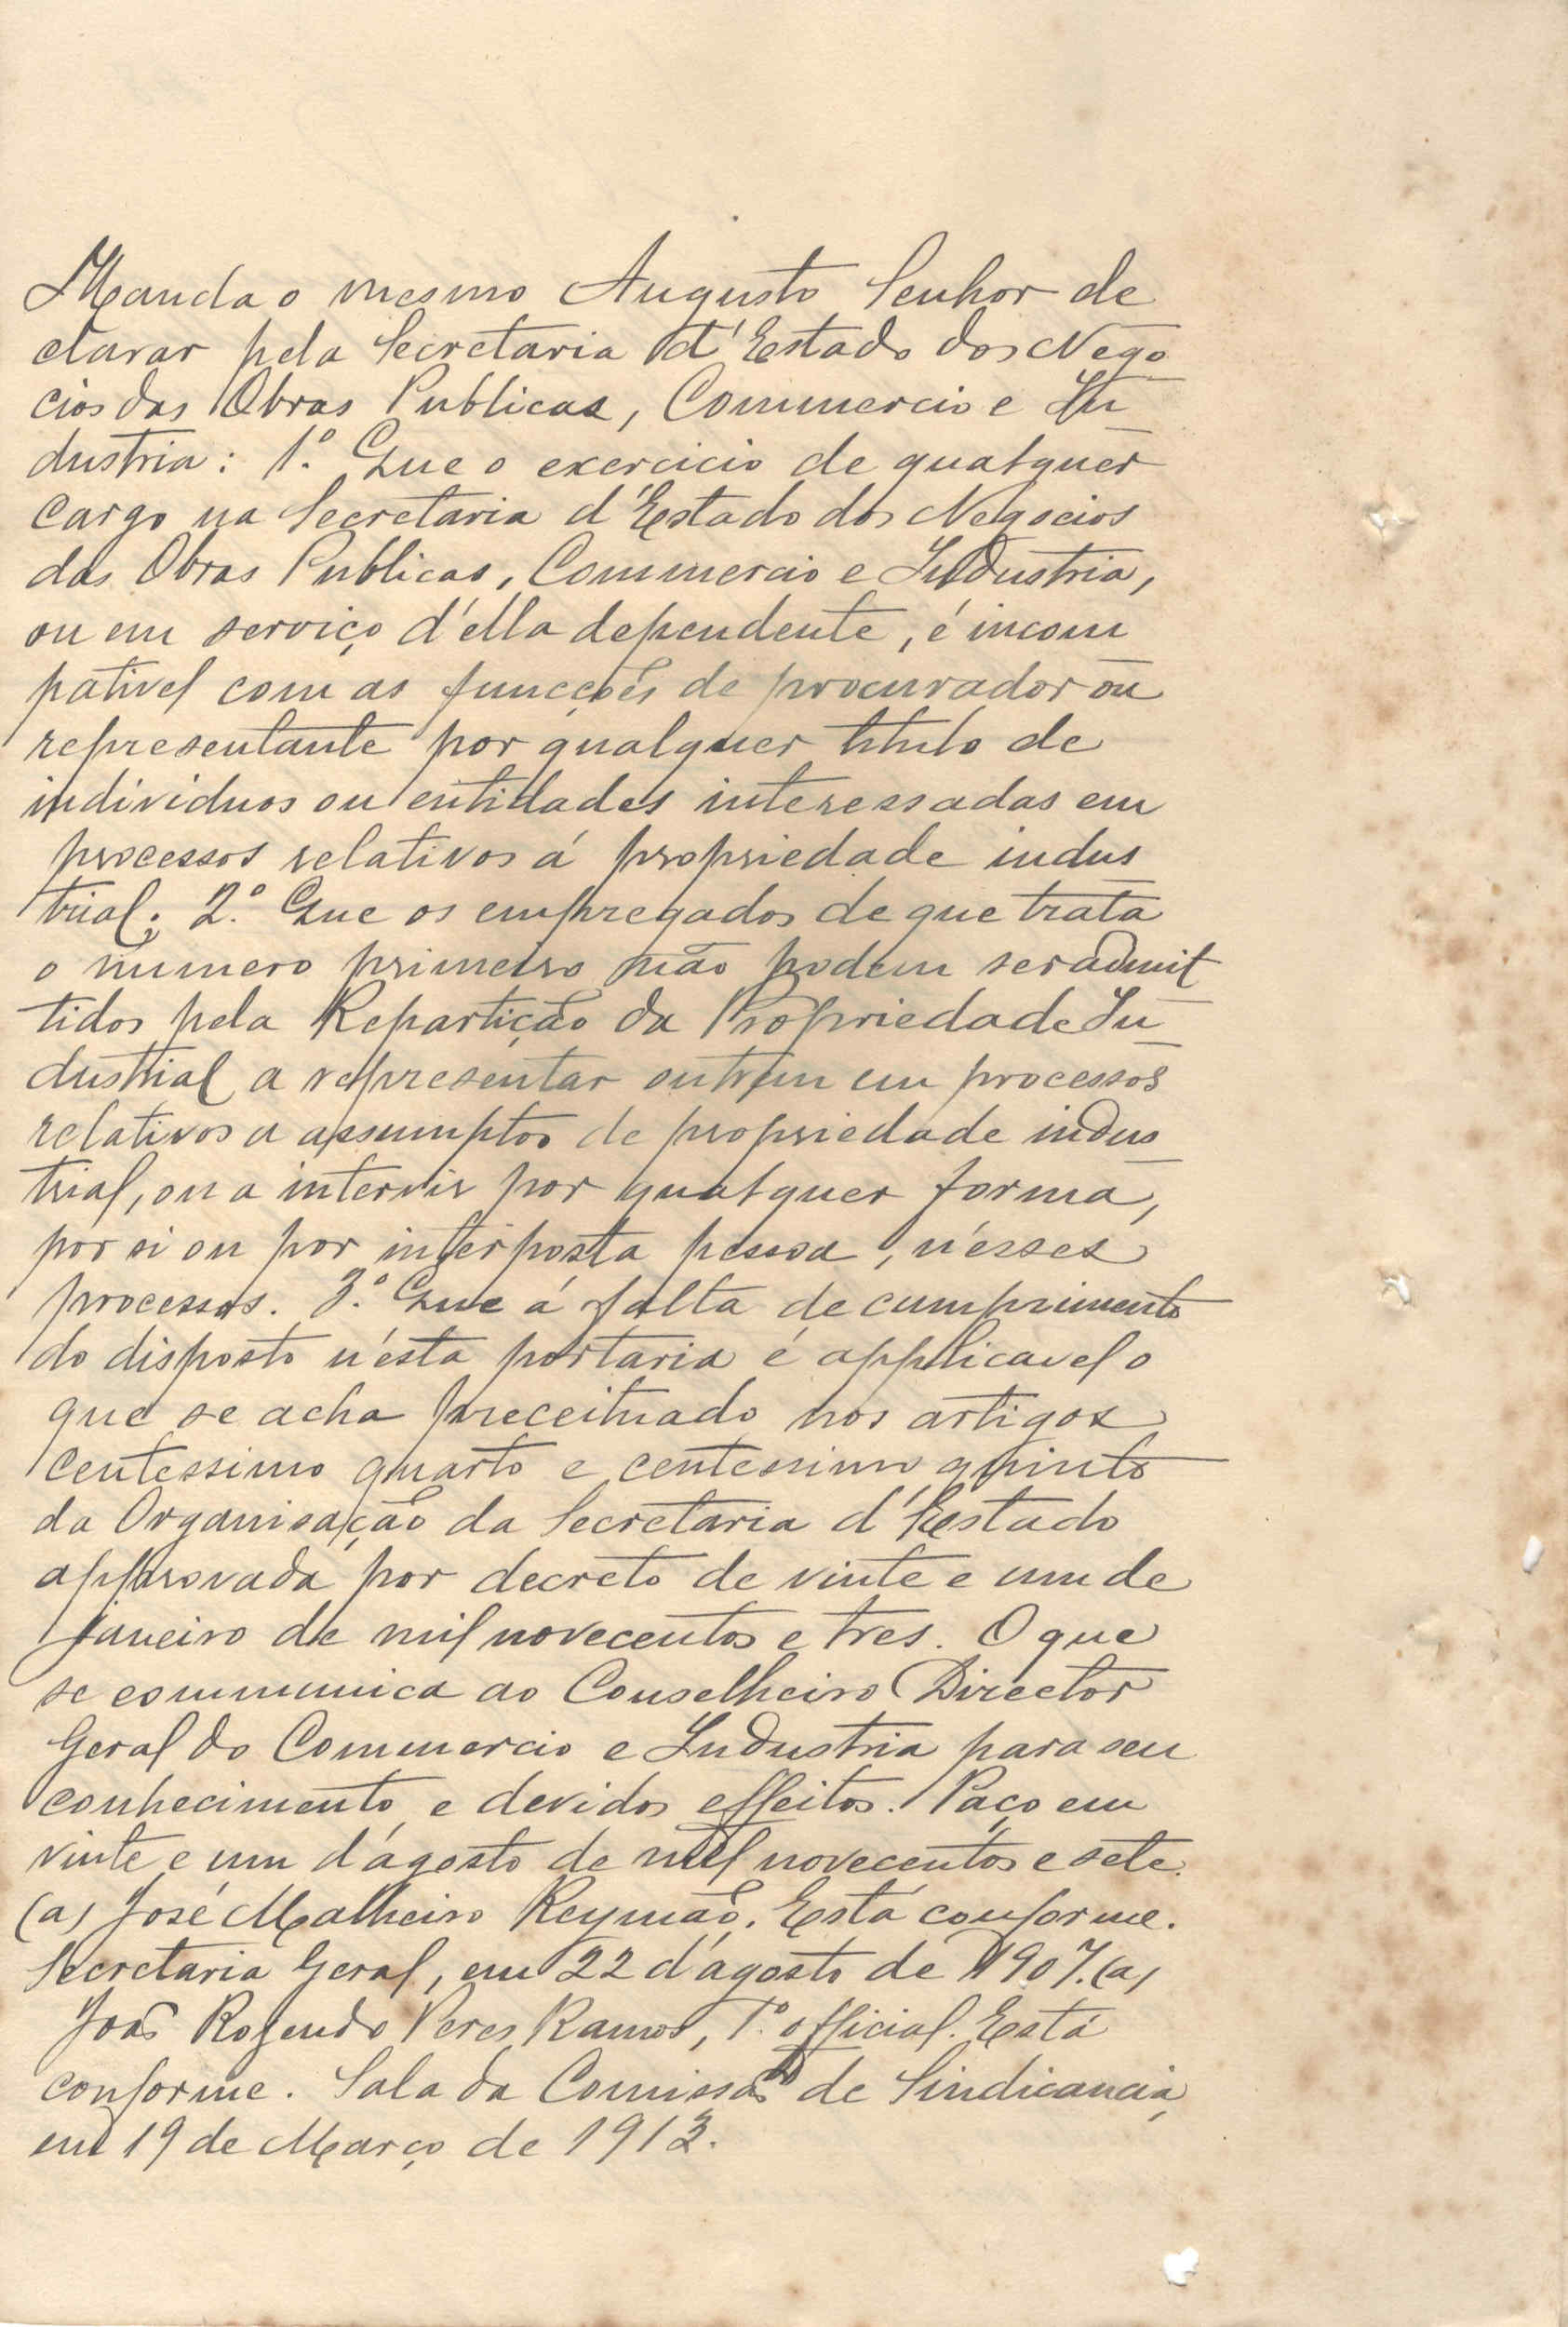 Manda o mesmo Augusto Senhor de
clarar pela Secretaria d'Estado dos Nego
cios das Obras Publicas, Commercio e In
dustria: 1.º Que o exercicio de qualquer
cargo na Secretaria d'Estado dos Negocios
das Obras Publicas, Commercio e Industria,
ou em serviço d'ella dependente, é incom
pativel com as funcções de procurador ou
representante por qualquer titulo de
individuos ou entidades interessadas em
processos relativos á propriedade indus
trial; 2.º Que os empregados de que trata
o numero primeiro não podem ser admit
tidos pela Repartição da Propriedade In
dustrial a representar outrem em processos
relativos a assumptos de propriedade indus
trial, ou a intervir por qualquer forma,
por si ou por interposta pessoa, n'esses
processos. 3.º Que á falta de cumprimento
do disposto n'ésta portaria é applicavel o
que se acha preceituado nos artigos
centessimo quarto e centessimo quinto
da Organisação da Secretaria d'Estado
approvada por decreto de vinte e um de
janeiro de mil novecentos e tres. O que
se communica ao Conselheiro Director
Geral do Commercio e Industria para seu
conhecimento e devidos effeitos. Paço em
vinte e um d'agosto de mil novecentos e sete.
(a) José Malheiro Reymão. Está conforme.
Secretaria Geral, em 22 d'agosto de 1907. (a)
João Rozendo Peres Ramos, 1.º official. Está
conforme. Sala da Comissão de Sindicancia,
em 19 de Março de 1913.